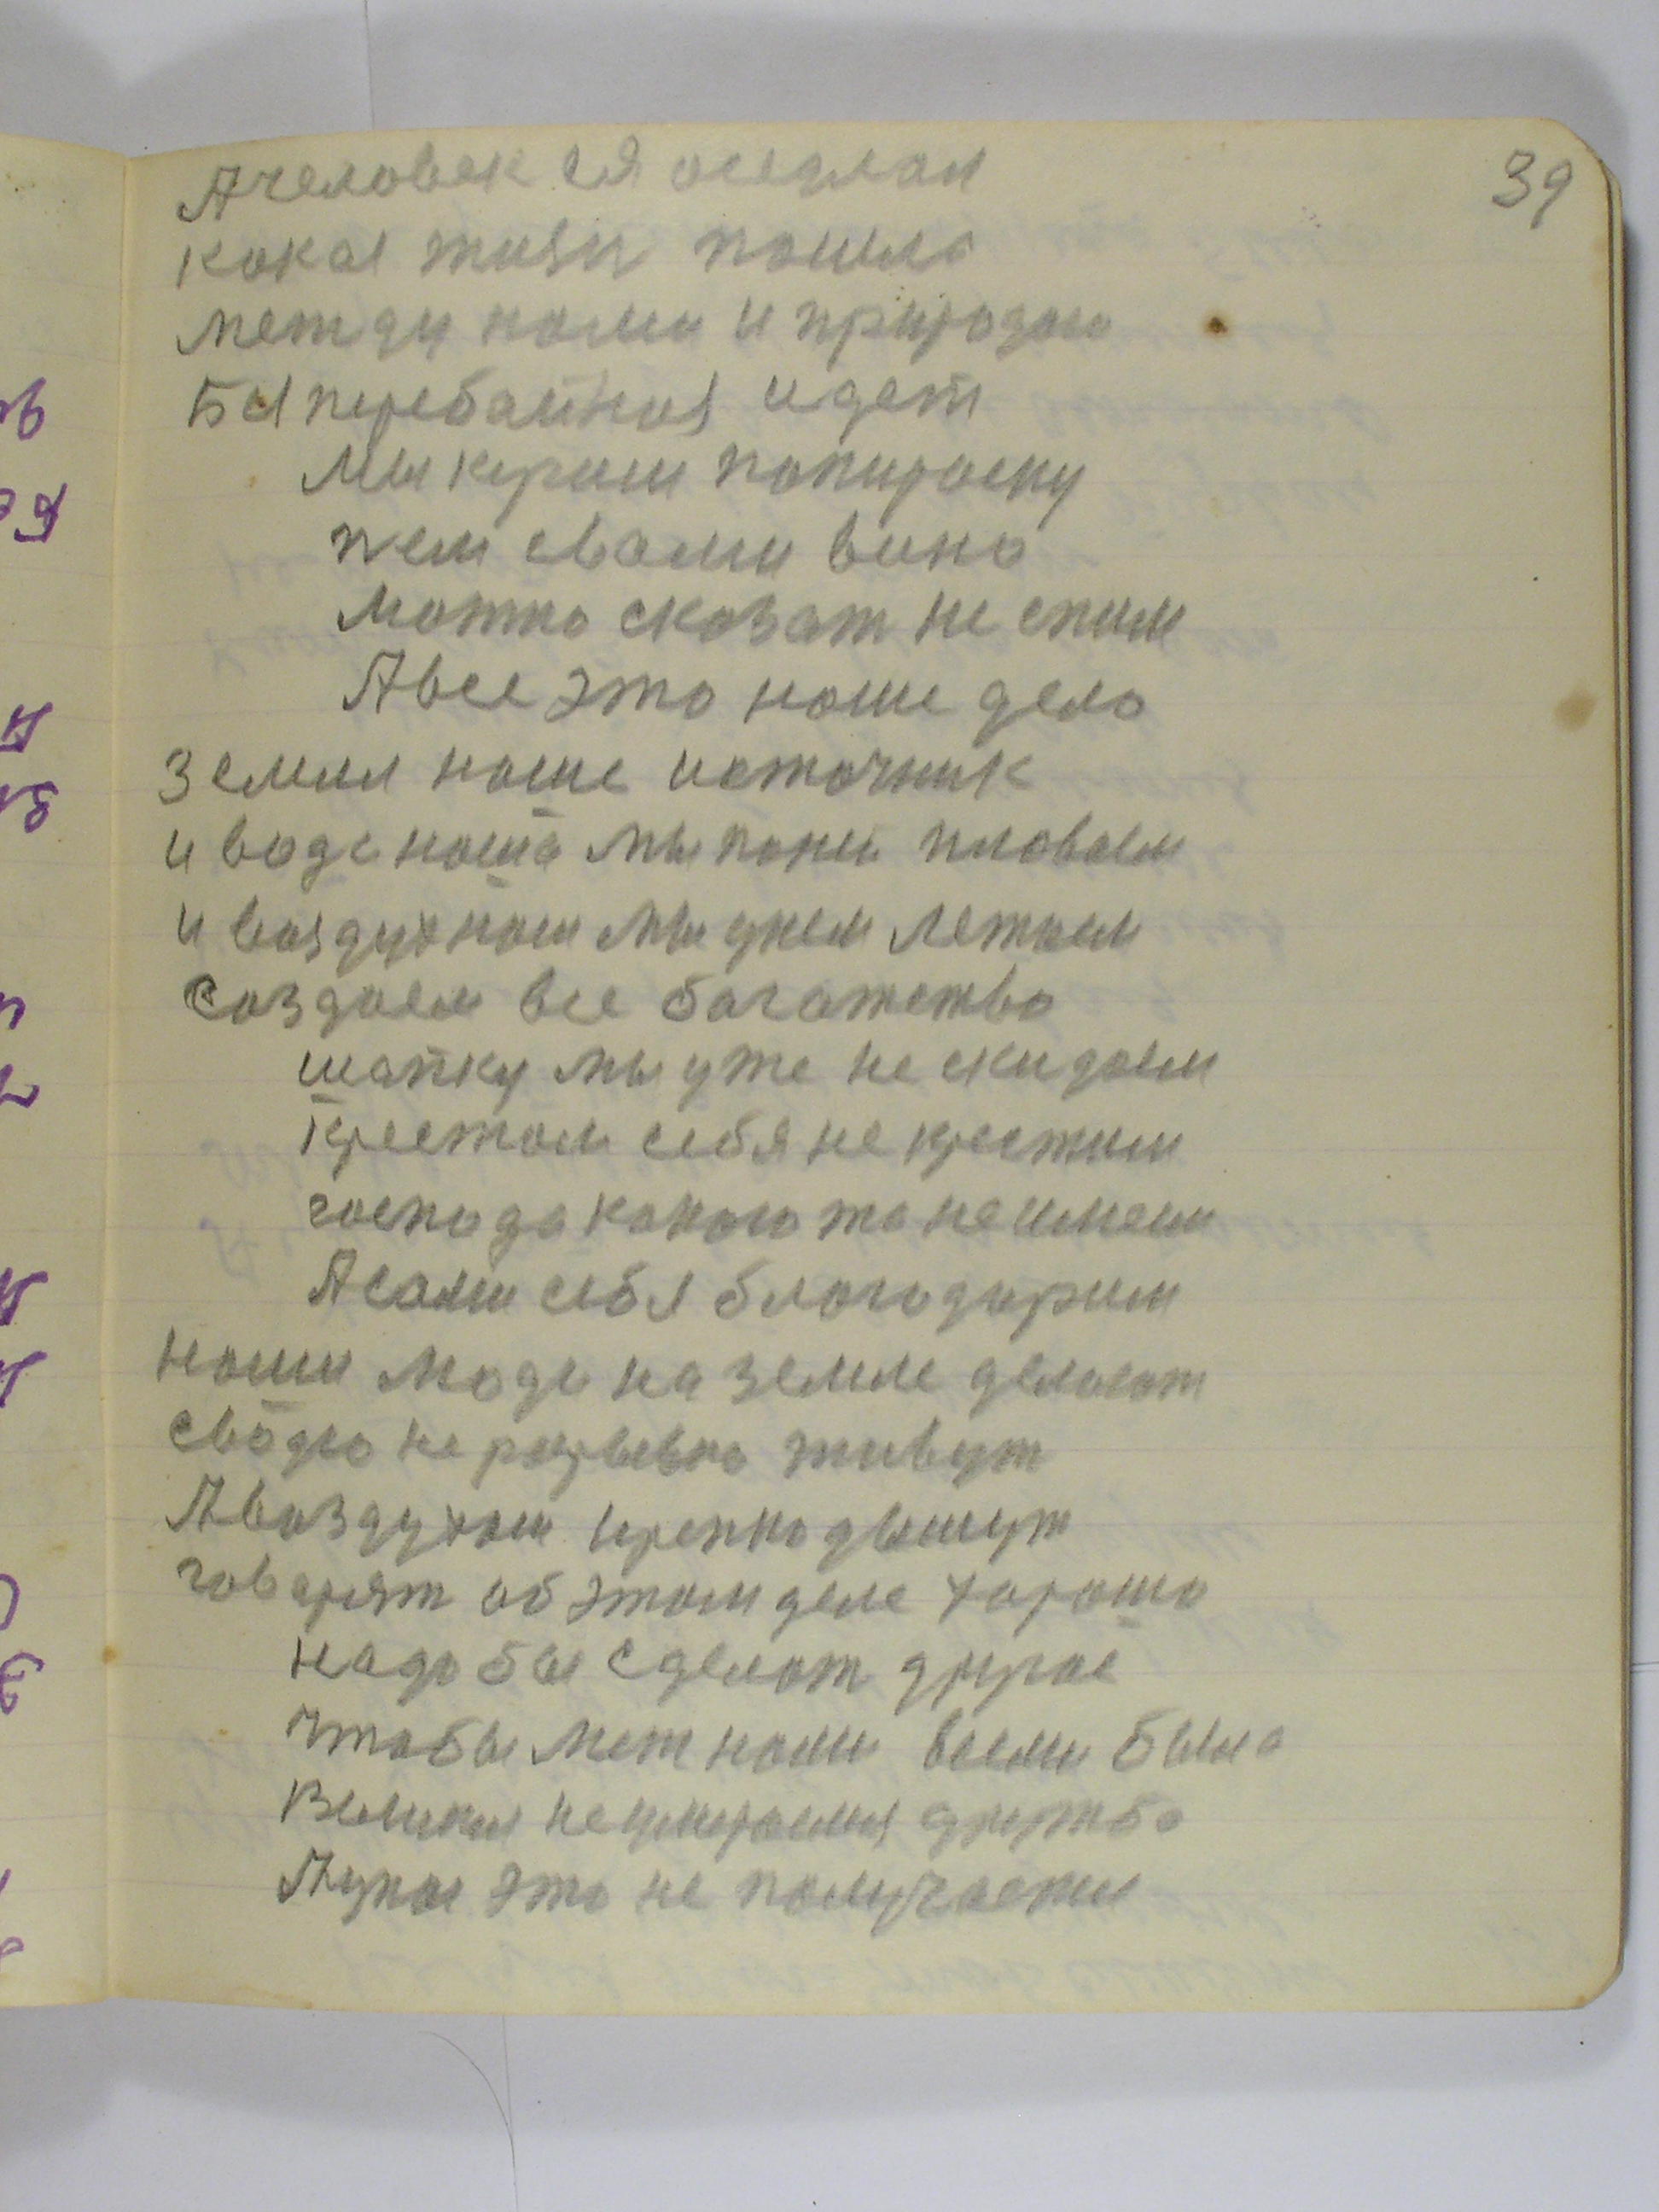 39
А человек ея оседлал
кокая жизн пошла
между нами и природаю
Бы перебайная идет
Мы курим папироску
пем свами вино
Можно сказат не спим
А все это наше дело
Земля наше источник
и вода наша мы поней плаваем
и воздух наш мы унем летаем
создаем все багатство
шапку мы уже не скидаем
крестом себя не крестим
господа каного та не имеем
А сами себя благодарим
Наши люди на земле делают
сводою не разрывно живут
А воздухом крепко дышут
говарят об этом деле хорошо
Надо бы сделат другое
чтобы меж нами всеми была
Великая неумираемая дружба
А у нас это не получается